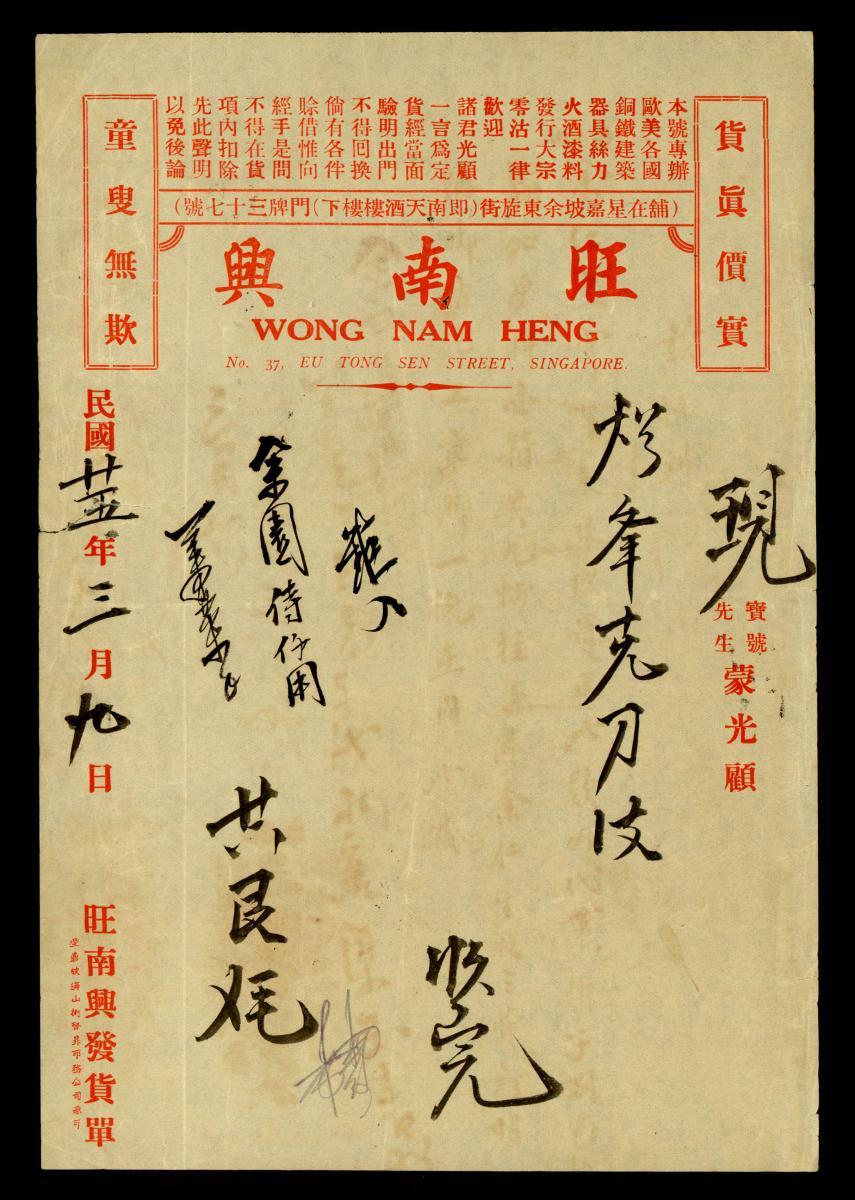 貨真價實
本號專辦
歐美各國
銅鐵建築
器具絲力
火酒漆料
發行大宗
零沽一律
歡迎
諸君光顧
一言為定
貨經當面
驗明出門
不得回換
倘有各伴
賒借惟向
經手是問
不得在貨
項內扣除
先此聲明
以免後論
童叟無欺
(舖在星嘉坡余東旋街(即南天酒樓樓下)門牌三十七號)
旺南興
WONG NAM HENG
No. 37, EU TONG SEN STREET, SINGAPORE.
現
寶號
先生
蒙光顧
余園侍仔用
共艮
民國廿五年三月九日
旺南興發貨單